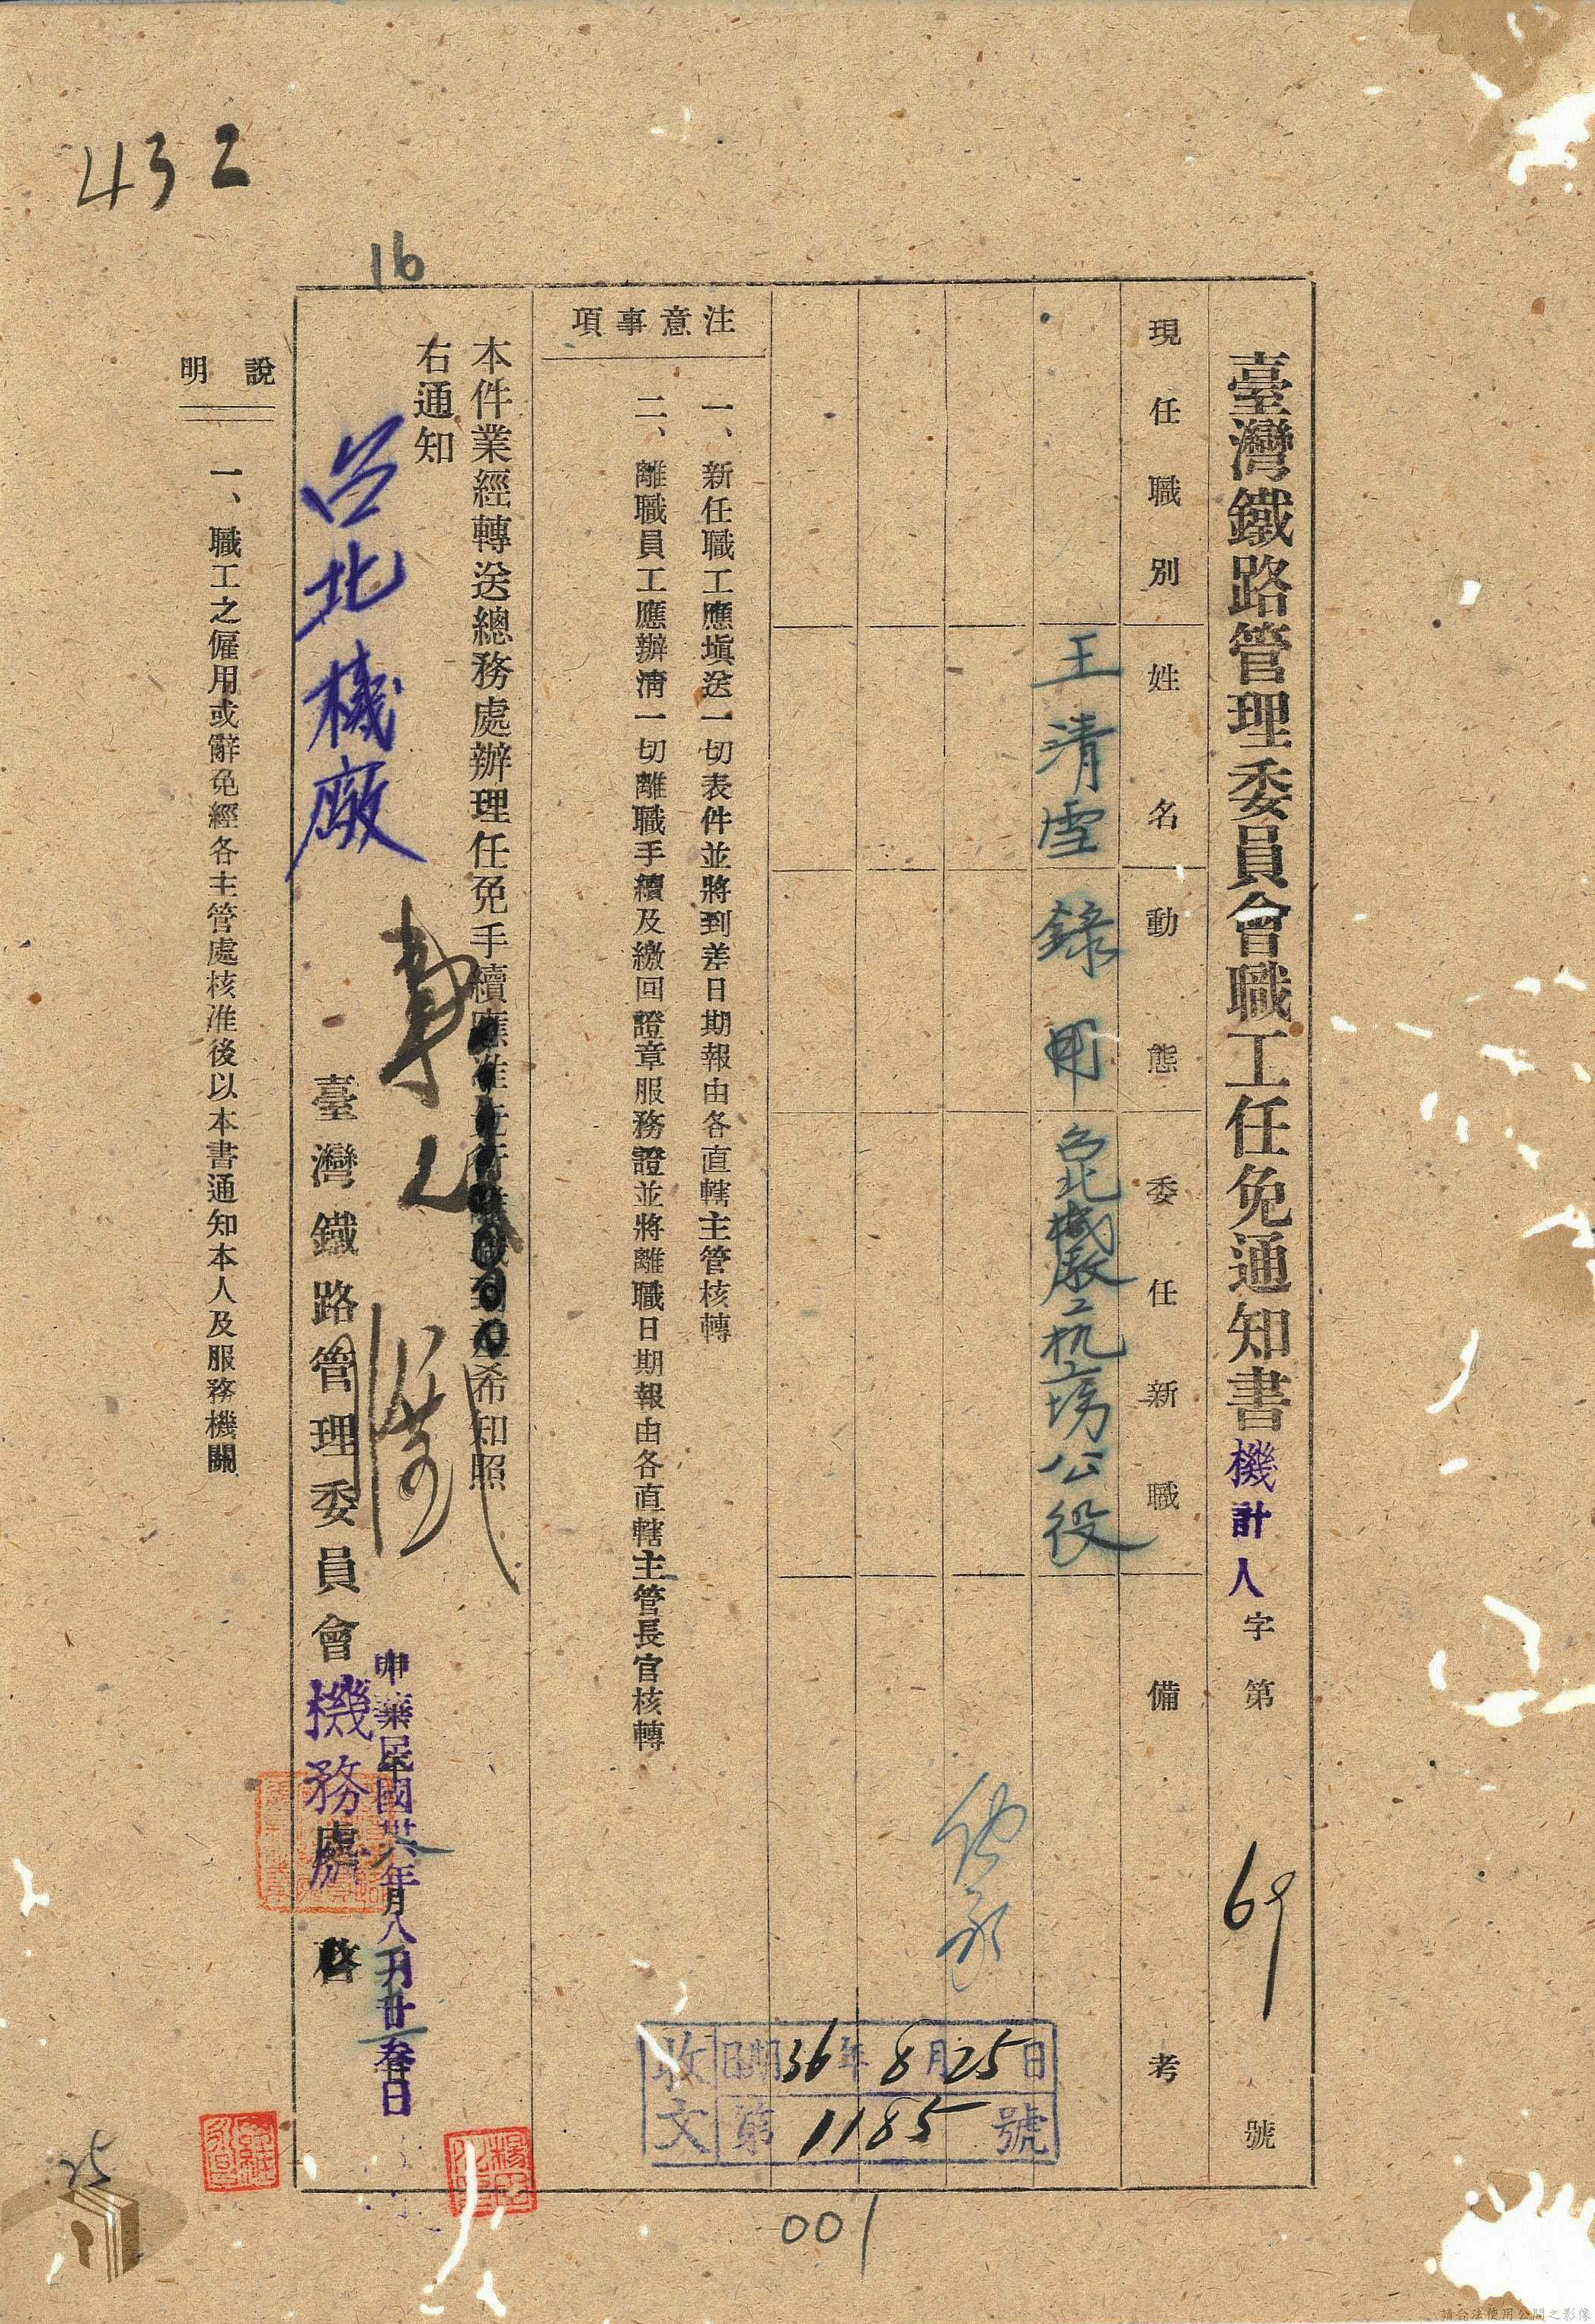 432
16
臺灣鐵路管理委員會職工任免通知書機計人字第69號
現任職別 姓名 動態 委任新職 備考
王清雲 錄用 台北機廠工机工場公役
注意事項
一、新任職工應塡送一切表件並將到差日期報由各直轄主管核轉
二、離職員工應辦淸一切離職手續及繳回證章服務證並將離職日期報由各直轄主管長官核轉
本件業經轉送總務處辦理任免手續應准先行離職到差希知照
右通知
台北機廠
臺灣鐵路管理委員會機務處啓
中華民國卅六年八月廿叁日
說明
一、職工之僱用或辭免經各主管處核准後以本書通知本人及服務機關
收文 日期36年8月25日
第1185號
001
25
請合法使用公開之影像